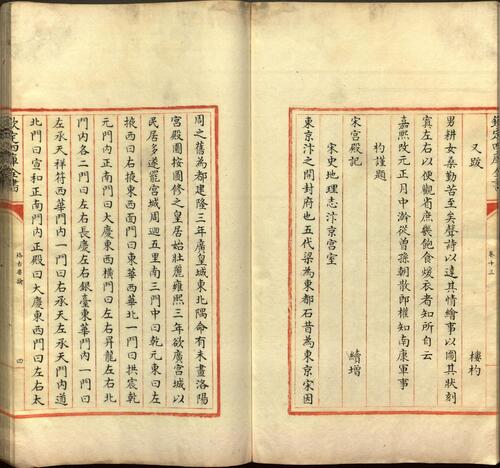 欽定四庫全書
卷十三
又跋 樓杓
男耕女桑勤苦至矣聲詩以達其情繪事以圖其狀刻
寘左右以便觀省庶幾飽食煖衣者知所自云
嘉熙改元正月中澣從曾孫朝散郎權知南康軍事
杓謹題
宋宮殿記 續增
宋史地理志汴京宮室
東京汴之開封府也五代梁為東都石昔為東京宋因
周之舊為都建隆三年廣皇城東北隅命有未畫洛陽
宮殿圖按圖修之皇居始壯麗雍熙三年欲廣宮城以
民居多遂罷宮城周迴五里南三門中曰乾元東曰左
掖西曰右掖東西面門曰東華西華北一門曰拱宸乾
元門內正南門曰大慶東西橫門曰左右昇龍左右北
門內各二門曰左右長慶左右銀臺東華門內一門曰
左承天祥符西華門內一門曰右承天左承天門內道
北門曰宣和正南門內正殿曰大慶東西門曰左右太
欽定四庫全書
格古要論
四